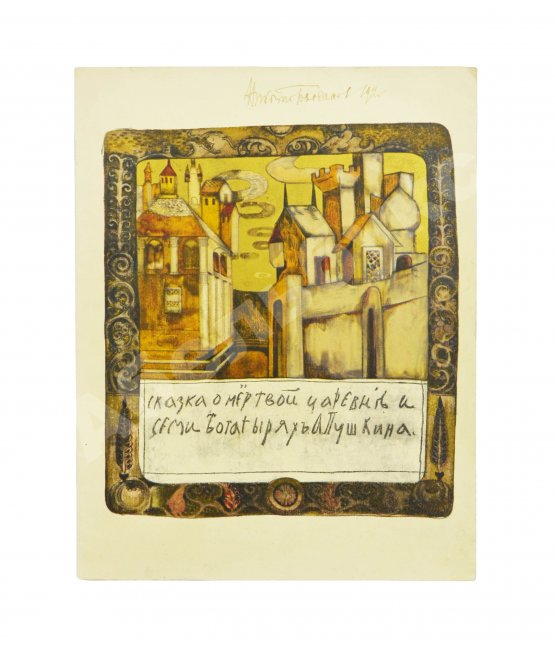 сказка о мёртвой царевнѣ и
семи богатыряхъ А Пушкина.